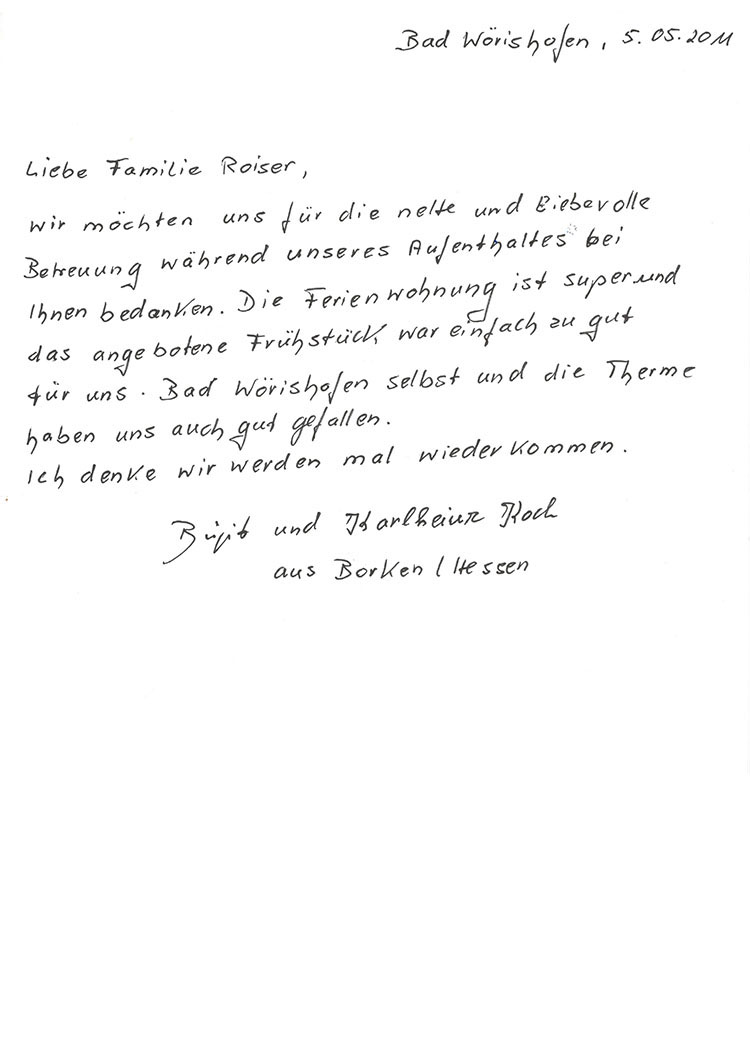 Bad Wörishofen, 5.05.2011
Liebe Familie Roiser,
wir möchten uns für die nette und liebevolle
Betreuung während unseres Aufenthaltes bei
Ihnen bedanken. Die Ferienwohnung ist super und
das angebotene Frühstück war einfach zu gut
für uns. Bad Wörishofen selbst und die Therme
haben uns auch gut gefallen.
Ich denke wir werden mal wieder kommen.
Birgit und Karlheinz Koch
aus Borken / Hessen